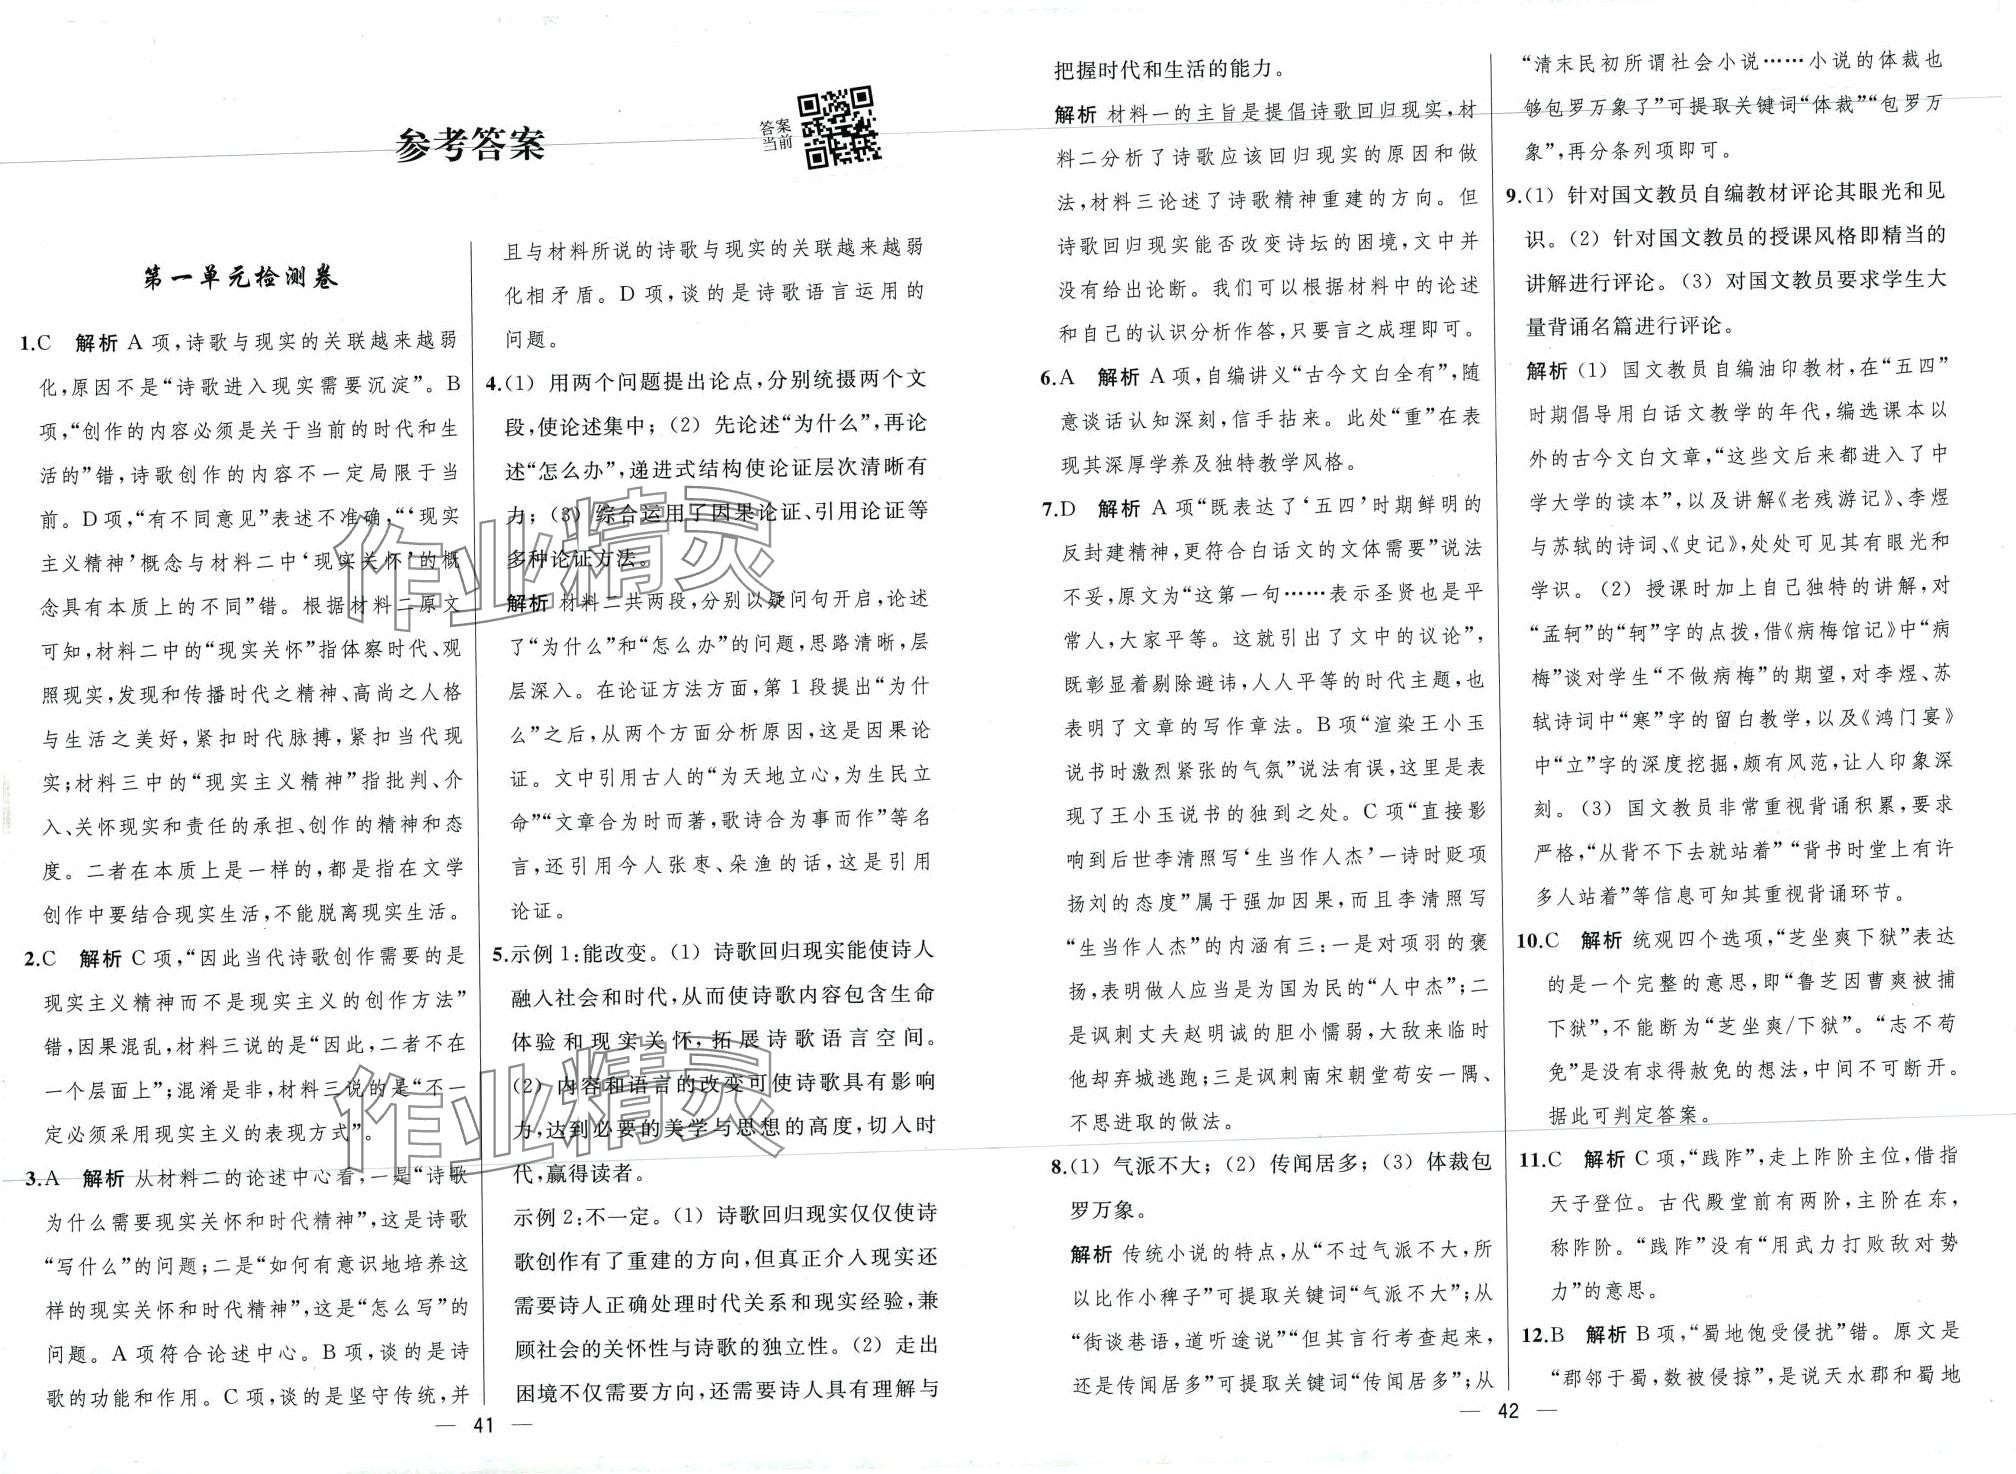 参考答案
答案
当前
第一单元检测卷
1.C 解析 A 项,诗歌与现实的关联越来越弱
化,原因不是“诗歌进入现实需要沉淀”。B
项,“创作的内容必须是关于当前的时代和生
活的”错,诗歌创作的内容不一定局限于当
前。D 项,“有不同意见”表述不准确,“‘现实
主义精神’概念与材料二中‘现实关怀’的概
念具有本质上的不同”错。根据材料二原文
可知,材料二中的“现实关怀”指体察时代、观
照现实,发现和传播时代之精神、高尚之人格
与生活之美好,紧扣时代脉搏,紧扣当代现
实;材料三中的“现实主义精神”指批判、介
入、关怀现实和责任的承担、创作的精神和态
度。二者在本质上是一样的,都是指在文学
创作中要结合现实生活,不能脱离现实生活。
2.C 解析 C 项,“因此当代诗歌创作需要的是
现实主义精神而不是现实主义的创作方法”
错,因果混乱,材料三说的是“因此,二者不在
一个层面上”;混淆是非,材料三说的是“不一
定必须采用现实主义的表现方式”。
3.A 解析 从材料二的论述中心看,一是“诗歌
为什么需要现实关怀和时代精神”,这是诗歌
“写什么”的问题;二是“如何有意识地培养这
样的现实关怀和时代精神”,这是“怎么写”的
问题。A 项符合论述中心。B 项,谈的是诗
歌的功能和作用。C 项,谈的是坚守传统,并
且与材料所说的诗歌与现实的关联越来越弱
化相矛盾。D 项,谈的是诗歌语言运用的
问题。
4.(1) 用两个问题提出论点,分别统摄两个文
段,使论述集中;(2) 先论述“为什么”,再论
述“怎么办”,递进式结构使论证层次清晰有
力;(3) 综合运用了因果论证、引用论证等
多种论证方法。
解析 材料二共两段,分别以疑问句开启,论述
了“为什么”和“怎么办”的问题,思路清晰,层
层深入。在论证方法方面,第 1 段提出“为什
么”之后,从两个方面分析原因,这是因果论
证。文中引用古人的“为天地立心,为生民立
命”“文章合为时而著,歌诗合为事而作”等名
言,还引用今人张枣、朵渔的话,这是引用
论证。
5.示例 1:能改变。(1) 诗歌回归现实能使诗人
融入社会和时代,从而使诗歌内容包含生命
体验和现实关怀,拓展诗歌语言空间。
(2) 内容和语言的改变可使诗歌具有影响
力,达到必要的美学与思想的高度,切入时
代,赢得读者。
示例 2:不一定。(1) 诗歌回归现实仅仅使诗
歌创作有了重建的方向,但真正介入现实还
需要诗人正确处理时代关系和现实经验,兼
顾社会的关怀性与诗歌的独立性。(2) 走出
困境不仅需要方向,还需要诗人具有理解与
— 41 —
把握时代和生活的能力。
解析 材料一的主旨是提倡诗歌回归现实,材
料二分析了诗歌应该回归现实的原因和做
法,材料三论述了诗歌精神重建的方向。但
诗歌回归现实能否改变诗坛的困境,文中并
没有给出论断。我们可以根据材料中的论述
和自己的认识分析作答,只要言之成理即可。
6.A 解析 A 项,自编讲义“古今文白全有”,随
意谈话认知深刻,信手拈来。此处“重”在表
现其深厚学养及独特教学风格。
7.D 解析 A 项“既表达了‘五四’时期鲜明的
反封建精神,更符合白话文的文体需要”说法
不妥,原文为“这第一句……表示圣贤也是平
常人,大家平等。这就引出了文中的议论”,
既彰显着剔除避讳,人人平等的时代主题,也
表明了文章的写作章法。B 项“渲染王小玉
说书时激烈紧张的气氛”说法有误,这里是表
现了王小玉说书的独到之处。C 项“直接影
响到后世李清照写‘生当作人杰’一诗时贬项
扬刘的态度”属于强加因果,而且李清照写
“生当作人杰”的内涵有三:一是对项羽的褒
扬,表明做人应当是为国为民的“人中杰”;二
是讽刺丈夫赵明诚的胆小懦弱,大敌来临时
他却弃城逃跑;三是讽刺南宋朝堂苟安一隅、
不思进取的做法。
8.(1) 气派不大;(2) 传闻居多;(3) 体裁包
罗万象。
解析 传统小说的特点,从“不过气派不大,所
以比作小稗子”可提取关键词“气派不大”;从
“街谈巷语,道听途说”“但其言行考查起来,
还是传闻居多”可提取关键词“传闻居多”;从
“清末民初所谓社会小说……小说的体裁也
够包罗万象了”可提取关键词“体裁”“包罗万
象”,再分条列项即可。
9.(1) 针对国文教员自编教材评论其眼光和见
识。(2) 针对国文教员的授课风格即精当的
讲解进行评论。(3) 对国文教员要求学生大
量背诵名篇进行评论。
解析 (1) 国文教员自编油印教材,在“五四”
时期倡导用白话文教学的年代,编选课本以
外的古今文白文章,“这些文后来都进入了中
学大学的读本”,以及讲解《老残游记》、李煜
与苏轼的诗词、《史记》,处处可见其有眼光和
学识。(2) 授课时加上自己独特的讲解,对
“孟轲”的“轲”字的点拨,借《病梅馆记》中“病
梅”谈对学生“不做病梅”的期望,对李煜、苏
轼诗词中“寒”字的留白教学,以及《鸿门宴》
中“立”字的深度挖掘,颇有风范,让人印象深
刻。(3) 国文教员非常重视背诵积累,要求
严格,“从背不下去就站着”“背书时堂上有许
多人站着”等信息可知其重视背诵环节。
10.C 解析 统观四个选项,“芝坐爽下狱”表达
的是一个完整的意思,即“鲁芝因曹爽被捕
下狱”,不能断为“芝坐爽/下狱”。“志不苟
免”是没有求得赦免的想法,中间不可断开。
据此可判定答案。
11.C 解析 C 项,“践阼”,走上阼阶主位,借指
天子登位。古代殿堂前有两阶,主阶在东,
称阼阶。“践阼”没有“用武力打败敌对势
力”的意思。
12.B 解析 B 项,“蜀地饱受侵扰”错。原文是
“郡邻于蜀,数被侵掠”,是说天水郡和蜀地
— 42 —
作业精灵
作业精灵